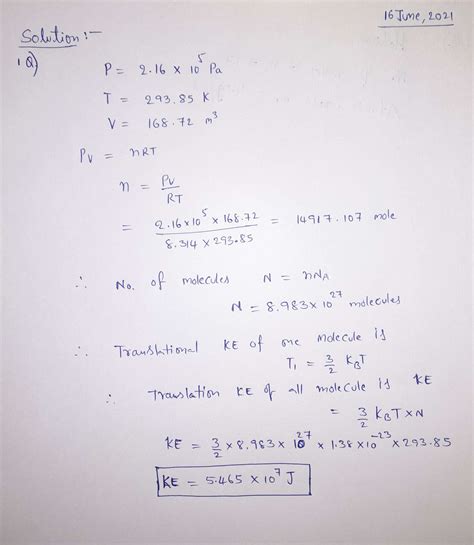 16 June, 2021
Solution :-
1Q)
P = 2.16 × 10⁵ Pa
T = 293.85 K
V = 168.72 m³
PV = nRT
n = PV/RT
= 2.16×10⁵ × 168.72 / 8.314 × 293.85 = 14917.107 mole
∴ No. of molecules N = nNA
N = 8.983× 10²⁷ molecules
∴ Translational KE of one molecule is
T₁ = 3/2 KBT
∴ Translation KE of all molecule is KE
= 3/2 KBT × N
KE = 3/2 × 8.983× 10²⁷ × 1.38 ×10⁻²³ × 293.85
KE = 5.465 × 10⁷ J